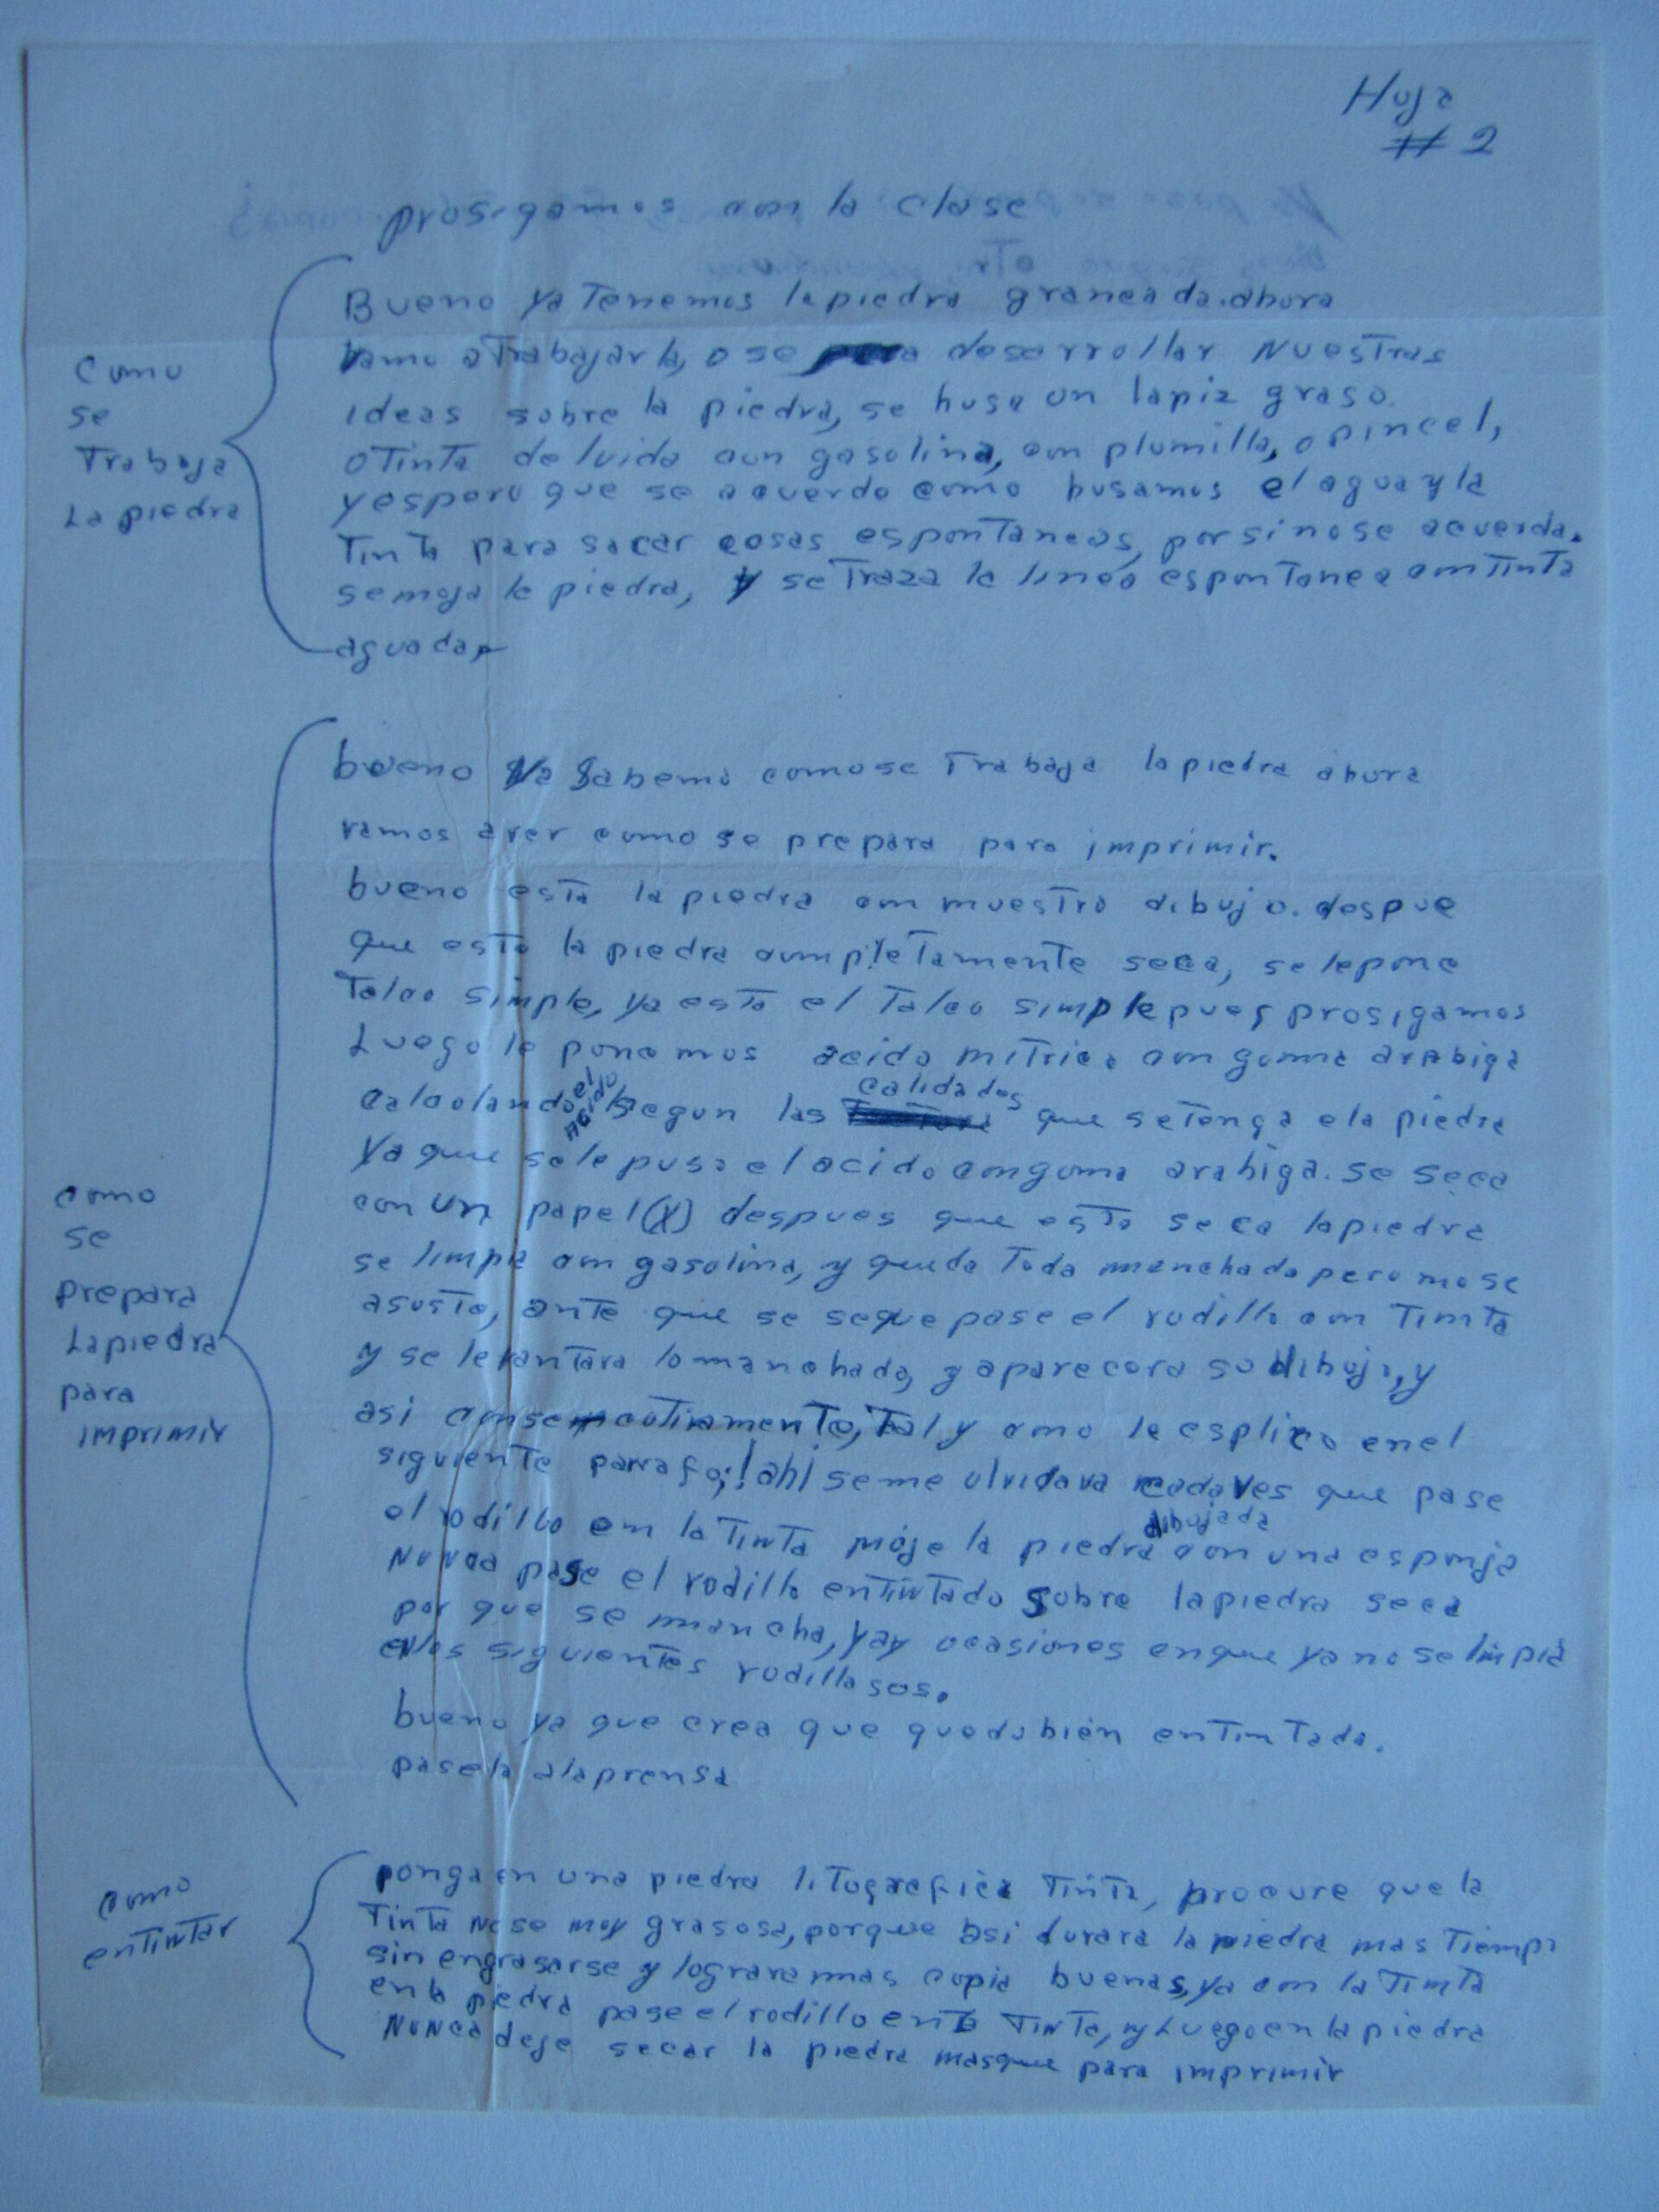 Hoja
# 2
prosigamos con la clase
Como
se
Trabaja
La piedra
Bueno ya Tenemos la piedra graneada. ahora
vamo a Trabajarla, o se desarrollar Nuestras
ideas sobre la piedra, se husa un lapiz graso.
o Tinta deluida con gasolina, con plumilla, o pincel,
y espero que se acuerde como husamos el agua y la
Tinta para sacar cosas espontaneas, por si no se acuerda.
se moja la piedra, y se Traza la linea espontanea con Tinta
aguada
como
se
prepara
La piedra
para
imprimir
bueno ya Sabemo como se Trabaja la piedra ahora
vamos a ver como se prepara para imprimir.
bueno esta la piedra con nuestro dibujo. despue
que esta la piedra completamente seca, se le pone
Talco simple, ya esta el Talco simple pues prosigamos
Luego le ponemos acido nitrico con goma arabiga
calculando el acido segun las calidades que se tenga e la piedra
ya que se le puso el acido con goma arabiga. se seca
con un papel (X) despues que esta seca la piedra
se limpia con gasolina, y queda Toda manchada pero no se
asuste, ante que se seque pase el rodillo con Tinta
y se levantara lo manchado, y aparecera su dibujo, y
asi consecutivamente, Tal y como le esplico en el
siguiente parrafo; ! ah! se me olvidava cada ves que pase
el rodillo con la Tinta moje la piedra dibujada con una esponja
Nunca pase el rodillo entintado sobre la piedra seca
por que se mancha, y ay ocasiones en que ya no se limpia
en los siguientes rodillasos.
bueno ya que crea que quedo bien entintada.
pasela a la prensa
como
entintar
ponga en una piedra litografica Tinta, procure que la
Tinta no se moy grasosa, porque asi durara la piedra mas Tiempo
sin engrasarse y lograra mas copia buenas, ya con la Tinta
en la piedra pase el rodillo en la Tinta, y Luego en la piedra
Nunca deje secar la piedra mas que para imprimir